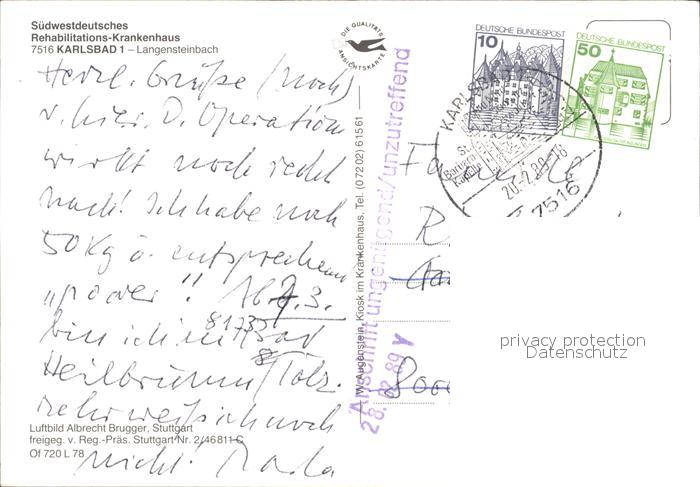 Südwestdeutsches
Rehabilitations-Krankenhaus
7516 KARLSBAD 1 – Langensteinbach
DIE QUALITÄTS
ANSICHTSKARTE
DEUTSCHE BUNDESPOST
10
DEUTSCHE BUNDESPOST
50
KARLSBAD
20.2.89-16
7516
Herzl. Grüße (noch)
v. hier. D. Operation
wirkt noch recht
nach! Ich habe noch
50 Kg u. entsprechen
"power"! Ab 7.3.
bin ich in Bad
81735
Heilbrunn/Tölz.
Mehr weiß ich noch
nicht!
Familie
R
800
W. Augenstein, Kiosk im Krankenhaus, Tel. (07202) 61561
Anschrift ungenügend/unzutreffend
28. 02. 89 Y
privacy protection
Datenschutz
Luftbild Albrecht Brugger, Stuttgart
freigeg. v. Reg.-Präs. Stuttgart Nr. 2/46811 C
Of 720 L 78